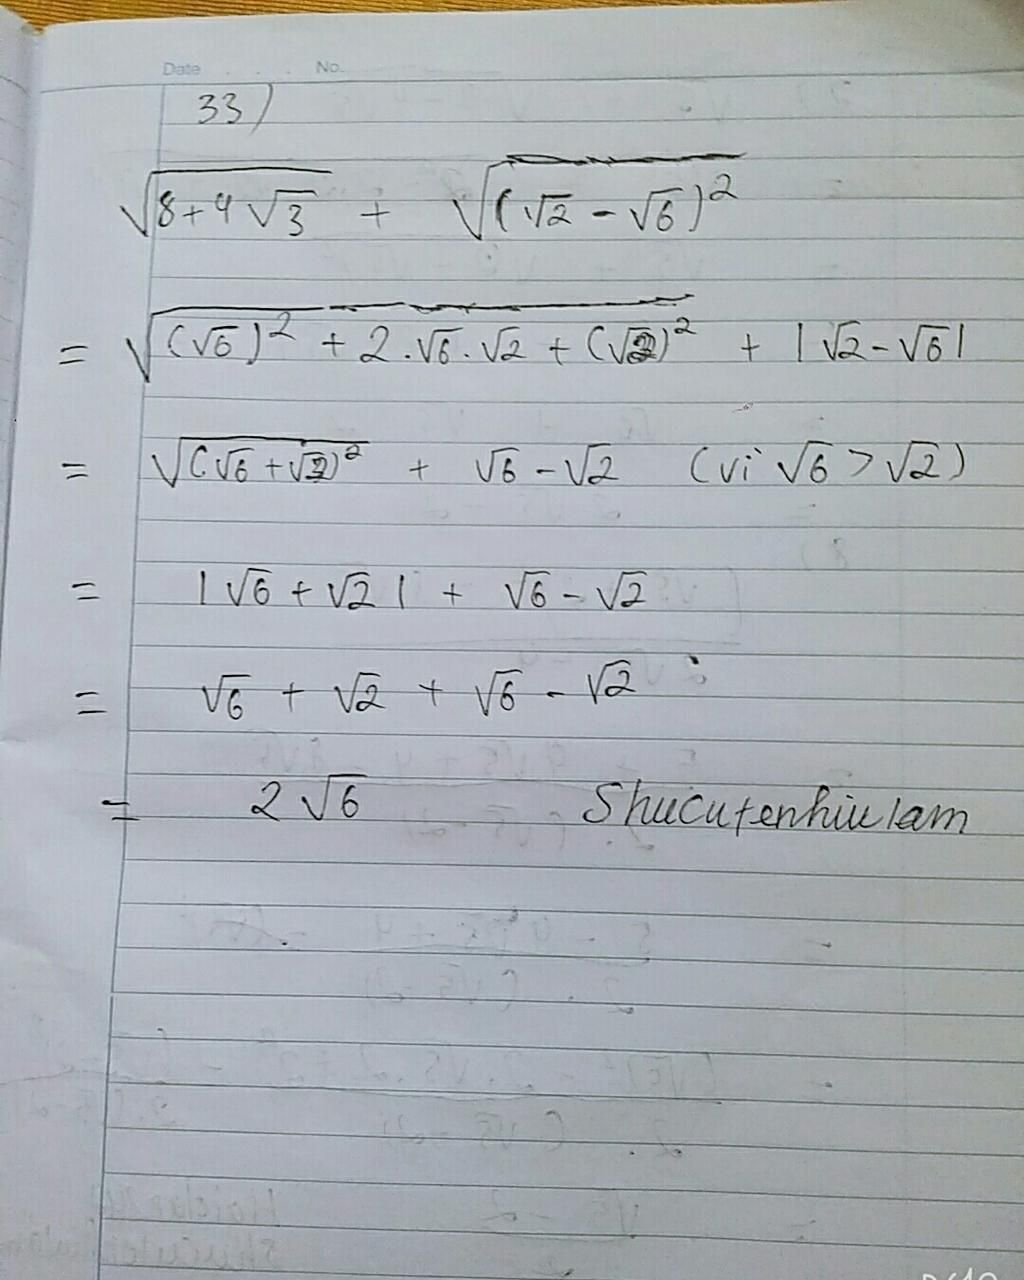 Date No.
33)
√(8+4√3) + √((√2 - √6)²)
= √((√6)² + 2.√6.√2 + (√2)²) + |√2-√6|
= √((√6+√2)²) + √6 - √2 (vì √6 > √2)
= |√6 + √2| + √6 - √2
= √6 + √2 + √6 - √2
= 2√6 Shucutenhiulam